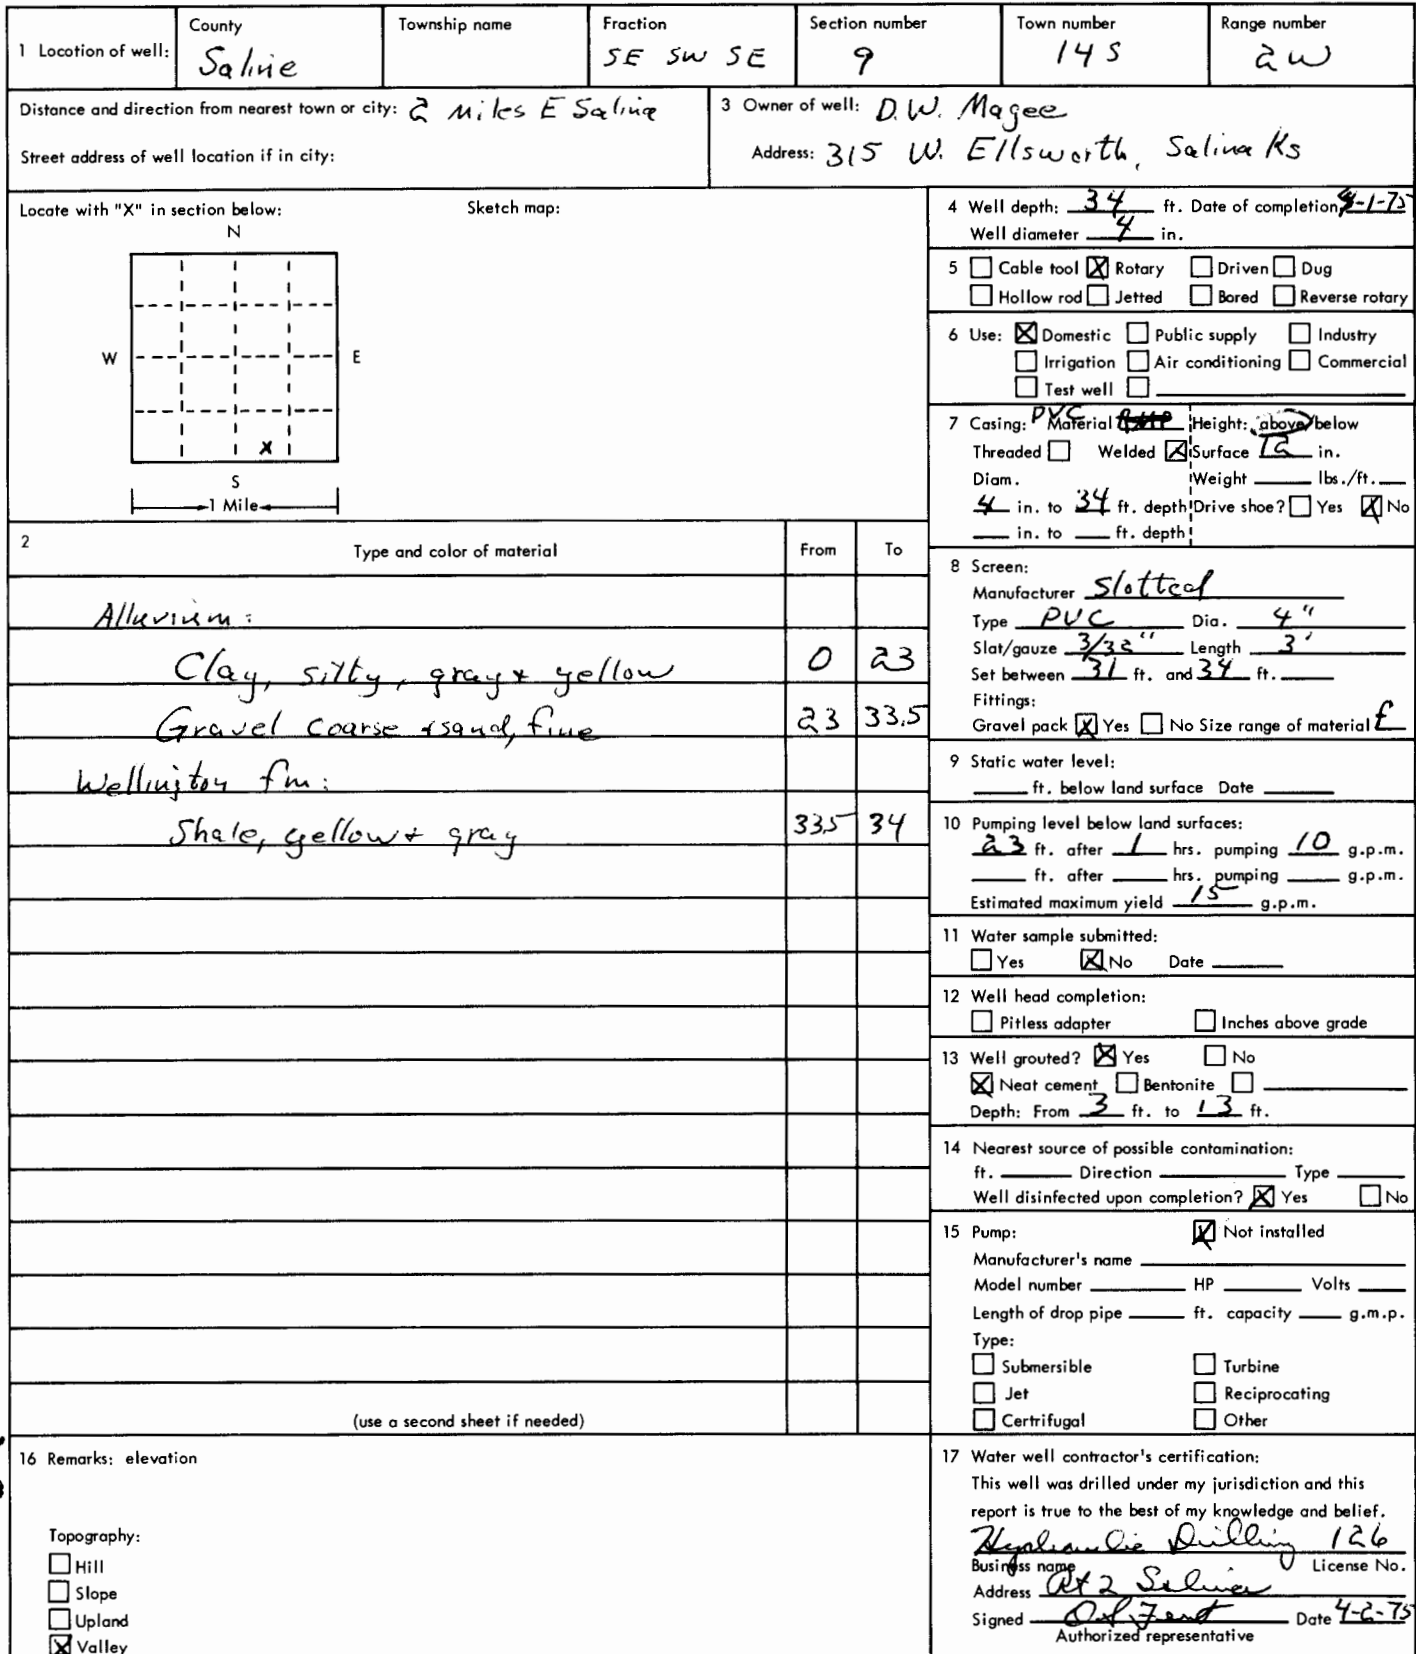 1 Location of well: County Saline Township name Fraction SE SW SE Section number 9 Town number 14 S Range number 2 W
Distance and direction from nearest town or city: 2 Miles E Salina
Street address of well location if in city:
3 Owner of well: D.W. Magee
Address: 315 W. Ellsworth, Salina Ks
Locate with "X" in section below: Sketch map:
N
W E
X
S
1 Mile
2 Type and color of material From To
Alluvium:
Clay, silty, gray & yellow 0 23
Gravel coarse & sand, fine 23 33.5
Wellington fm:
Shale, yellow & gray 33.5 34
(use a second sheet if needed)
4 Well depth: 34 ft. Date of completion -1-75
Well diameter 4 in.
5 Cable tool X Rotary Driven Dug
Hollow rod Jetted Bored Reverse rotary
6 Use: X Domestic Public supply Industry
Irrigation Air conditioning Commercial
Test well
7 Casing: PVC Material Height: above/below
Threaded Welded X Surface 12 in.
Diam. Weight lbs./ft.
4 in. to 34 ft. depth Drive shoe? Yes X No
in. to ft. depth
8 Screen:
Manufacturer Slotted
Type PVC Dia. 4"
Slat/gauze 3/32" Length 3'
Set between 31 ft. and 34 ft.
Fittings:
Gravel pack X Yes No Size range of material f
9 Static water level:
ft. below land surface Date
10 Pumping level below land surfaces:
23 ft. after 1 hrs. pumping 10 g.p.m.
ft. after hrs. pumping g.p.m.
Estimated maximum yield 15 g.p.m.
11 Water sample submitted:
Yes X No Date
12 Well head completion:
Pitless adapter Inches above grade
13 Well grouted? X Yes No
X Neat cement Bentonite
Depth: From 3 ft. to 13 ft.
14 Nearest source of possible contamination:
ft. Direction Type
Well disinfected upon completion? X Yes No
15 Pump: X Not installed
Manufacturer's name
Model number HP Volts
Length of drop pipe ft. capacity g.m.p.
Type:
Submersible Turbine
Jet Reciprocating
Certrifugal Other
16 Remarks: elevation
Topography:
Hill
Slope
Upland
X Valley
17 Water well contractor's certification:
This well was drilled under my jurisdiction and this
report is true to the best of my knowledge and belief.
Hydraulic Drilling 126
Business name License No.
Address Rt 2 Salina
Signed Date 4-2-75
Authorized representative